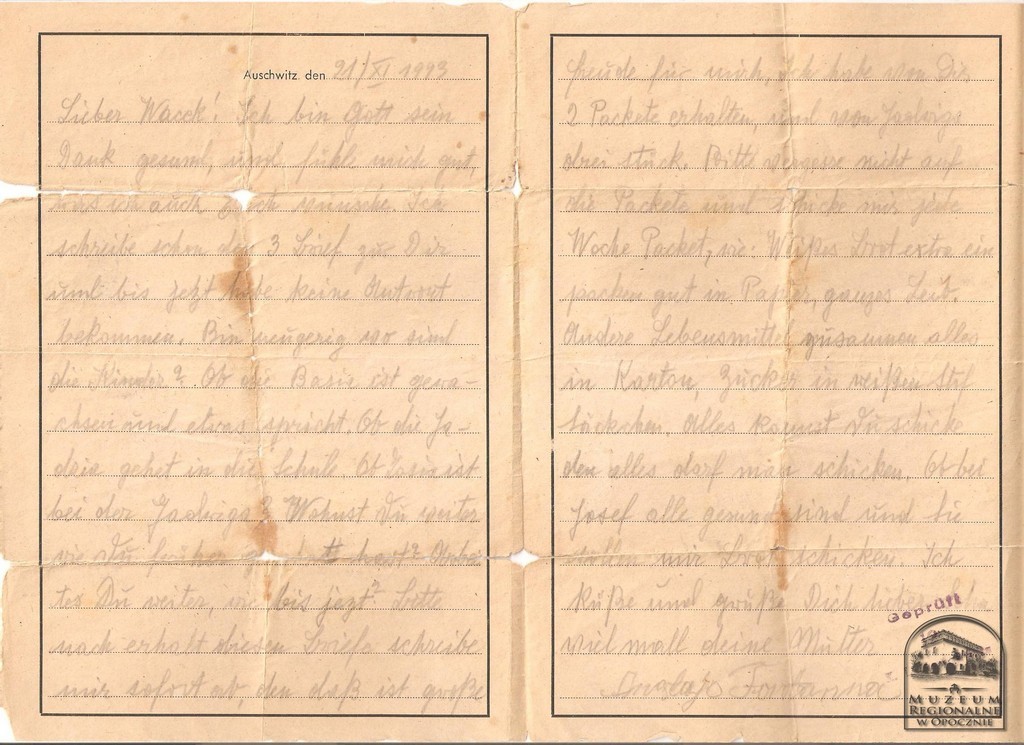 Auschwitz, den 21/XI 1943
Lieber Wacek! Ich bin Gott sein
Dank gesund, und fühle mich gut,
was ich auch Euch wünsche. Ich
schreibe schon den 3 Brief zu Dir
und bis jetzt habe keine Antwort
bekommen. Bin neugerig wo sind
die Kinder? Ob die Basia ist gewa-
chsen und etwas spricht. Ob die Ja-
dzia gehet in die Schule. Ob Jasia ist
bei der Jadwiga? Wohnst Du weiter
wie Du früher hast? Arbei
test Du weiter, wie bis jezt? Bitte
nach erhalt diesen Briefe schreibe
mir sofort ab, den daß ist große
freude für mich, Ich habe von Dir
2 Packete erhalten, und von Jadwiga
drei stück. Bitte vergesse nicht auf
die Packete und schicke mir jede
Woche Packet, wie: Weißes Brot extra ein
packen gut in Papier, ganzes
Andere Lebensmittel zusammen alles
in Karton, Zucker in weißen
säckchen. Alles kannst Du schicke
den alles darf man schicken. Ob bei
Josef alle gesund sind und Sie
sollen mir Brot schicken. Ich
küße und grüße Dich
viel mall deine Mutter
Geprüft
MUZEUM
REGIONALNE
W OPOCZNIE